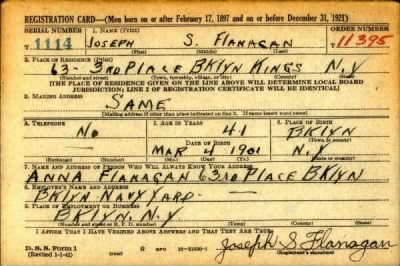 REGISTRATION CARD—(Men born on or after February 17, 1897 and on or before December 31, 1921)
SERIAL NUMBER 1. NAME (Print) ORDER NUMBER
T 1114 JOSEPH S. FLANAGAN T 11395
(First) (Middle) (Last)
2. PLACE OF RESIDENCE (Print)
63- 3RD PLACE BKLYN KINGS N.Y
(Number and street) (Town, township, village, or city) (County) (State)
[THE PLACE OF RESIDENCE GIVEN ON THE LINE ABOVE WILL DETERMINE LOCAL BOARD
JURISDICTION; LINE 2 OF REGISTRATION CERTIFICATE WILL BE IDENTICAL]
3. MAILING ADDRESS
SAME
[Mailing address if other than place indicated on line 2. If same insert word same]
4. TELEPHONE 5. AGE IN YEARS 6. PLACE OF BIRTH
NO 41 BKLYN
DATE OF BIRTH (Town or county)
MAR 4 1901 N.Y.
(Exchange) (Number) (Mo.) (Day) (Yr.) (State or country)
7. NAME AND ADDRESS OF PERSON WHO WILL ALWAYS KNOW YOUR ADDRESS
ANNA FLANAGAN 63 RD PLACE BKLYN
8. EMPLOYER'S NAME AND ADDRESS
BKLYN NAVY YARD
9. PLACE OF EMPLOYMENT OR BUSINESS
BKLYN. N.Y.
(Number and street or R. F. D. number) (Town) (County) (State)
I AFFIRM THAT I HAVE VERIFIED ABOVE ANSWERS AND THAT THEY ARE TRUE.
D. S. S. Form 1
(Revised 1-1-42) GPO 16-21630-1 Joseph S Flanagan
(Registrant's signature)